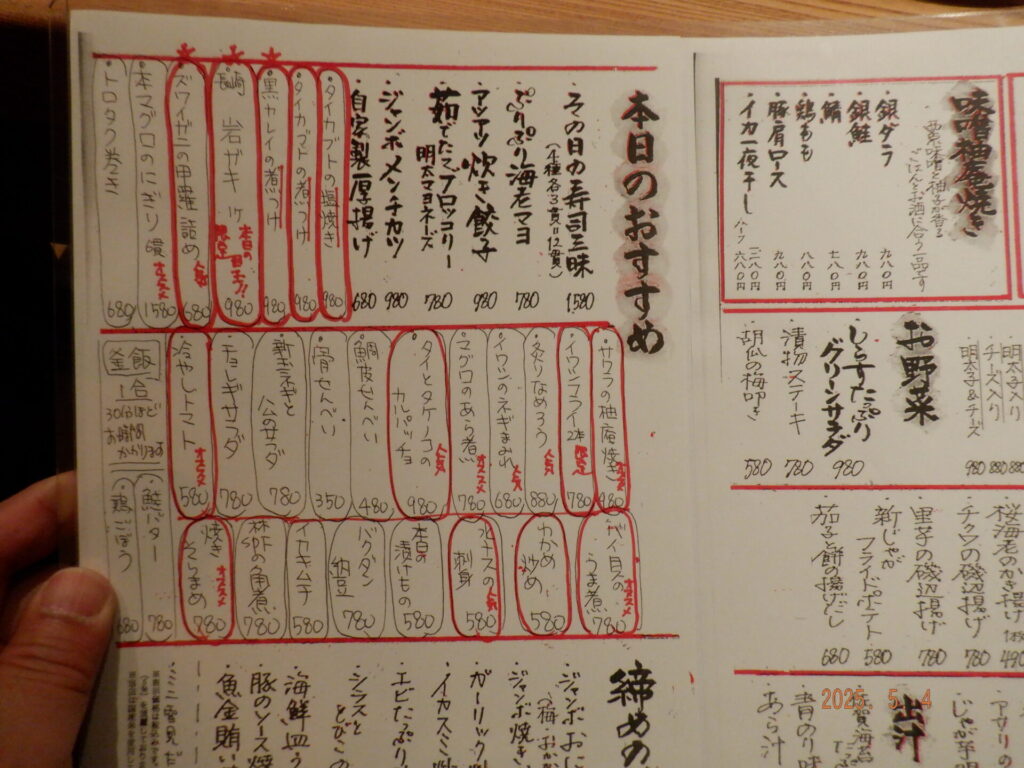 味噌柚庵焼き
ごはんとお酒に合う一品です
銀ダラ 九八〇円
銀鮭 九八〇円
鯖 七八〇円
鶏もも 八八〇円
豚肩ロース 九八〇円
イカ一夜干し
ハーフ 六八〇円
本日のおすすめ
その日の寿司三昧 1,580
(4種各3貫=12貫)
ぷりぷり海老マヨ 780
アツアツ炊き餃子 980
茹でたてブロッコリー
明太マヨネーズ 780
ジャンボメンチカツ 980
自家製厚揚げ 680
タイカブトの塩焼き 980
タイカブトの煮つけ 980
黒カレイの煮つけ 980
長崎 岩ガキ 1ケ 980
本日の
限定
ズワイガニの甲羅詰め 人気 680
本マグロのにぎり 6貫 オススメ 1580
トロタク巻き 680
お野菜
明太子入り 880
チーズ入り 880
明太子&チーズ 980
しらすたっぷり
グリーンサラダ 980
漬物ステーキ 780
胡瓜の梅叩き 580
サワラの柚庵焼き オススメ 980
イワシフライ 2本 限定 780
炙りなめろう 人気 880
イワシのネギまみれ 人気 680
マグロのあら煮 オススメ 780
タイとタケノコの
カルパッチョ 人気 980
鯛皮せんべい 480
骨せんべい 350
新玉ネギと
ハムのサラダ 780
チョレギサラダ 780
冷やしトマト オススメ 580
釜飯
1合
30分ほど
お時間
かかります
鮭バター 780
鶏ごぼう 680
桜海老のかき揚げ
490
チクワの磯辺揚げ 780
里子の磯辺揚げ 780
新じゃが
フライドポテト 580
茄子と餅の揚げだし 680
バイ貝の
うま煮 オススメ 780
わかめ
炒め 人気 580
水ナスの
刺身 人気 580
本日の
漬けもの 580
バクダン
納豆 780
イカキムチ 580
林SPFの角煮 780
焼き
そらまめ オススメ 780
出汁
青のり味
あら汁
締めの
ジャンボおに
(梅・おか
ジャンボ焼き
ガーリック炒
イカスミ炒
エビたっぷり
シラスと
とびこ
海鮮皿う
豚のソース焼
魚金賄い
2025. 5. 4